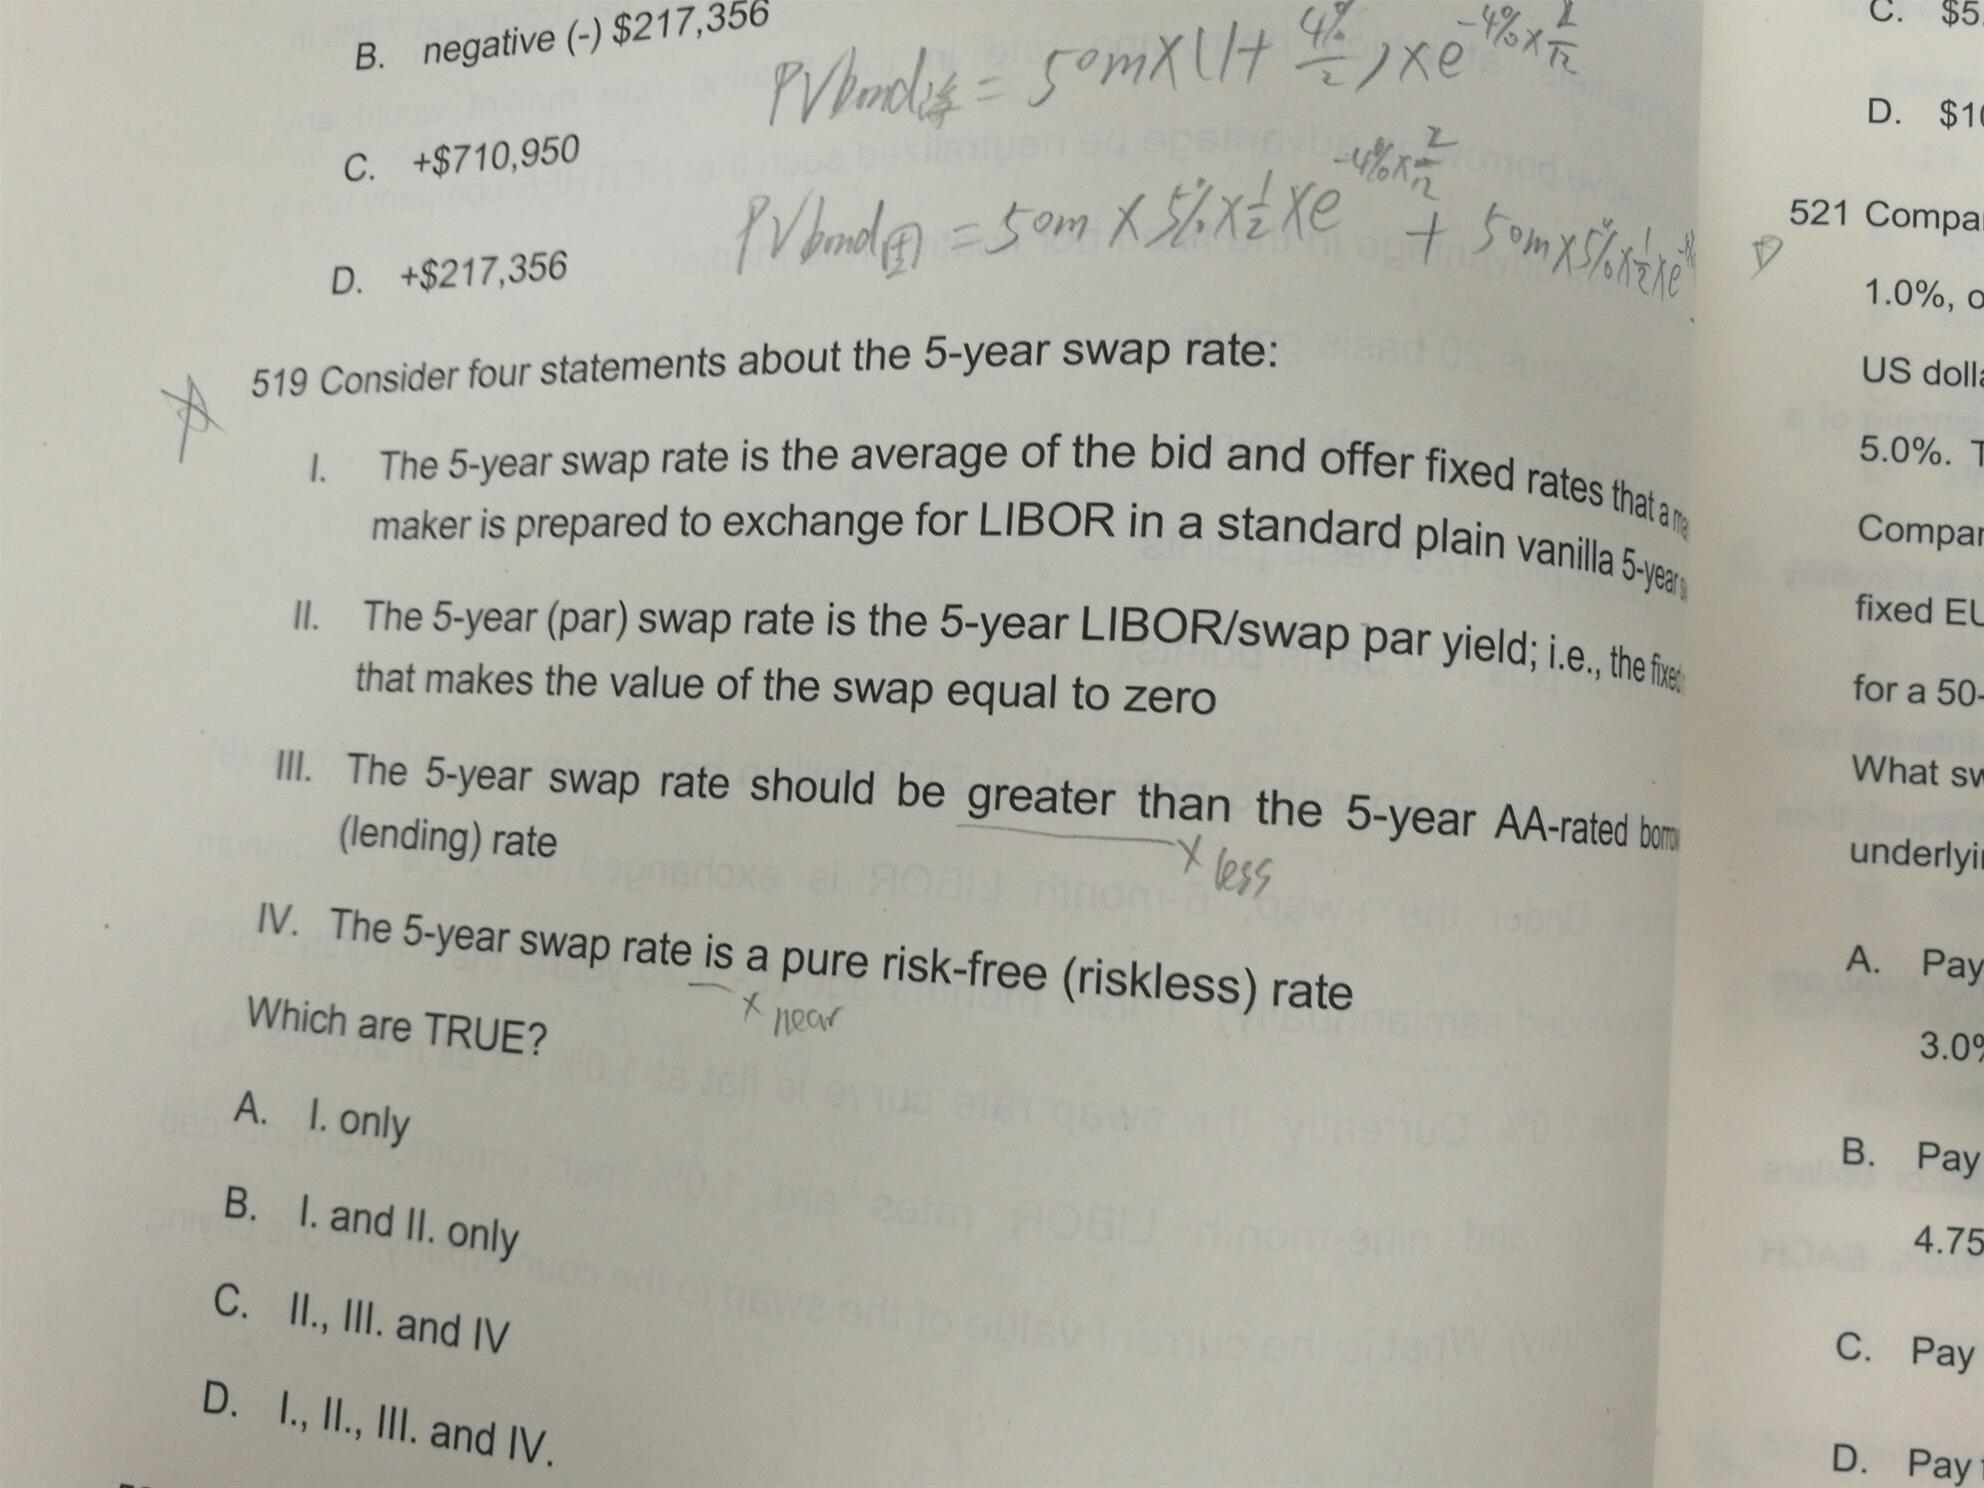 B. negative (-) $217,356
PVbond浮 = 50m×(1+ 4%/2)×e^-4%×2/12
C. +$710,950
PVbond固 = 50m × 5%×1/2×e^-4%×2/12 + 50m×5%×1/2×e
D. +$217,356
519 Consider four statements about the 5-year swap rate:
I. The 5-year swap rate is the average of the bid and offer fixed rates that a
maker is prepared to exchange for LIBOR in a standard plain vanilla 5-year
II. The 5-year (par) swap rate is the 5-year LIBOR/swap par yield; i.e., the fixed
that makes the value of the swap equal to zero
III. The 5-year swap rate should be greater than the 5-year AA-rated
(lending) rate
× less
IV. The 5-year swap rate is a pure risk-free (riskless) rate
× near
Which are TRUE?
A. I. only
B. I. and II. only
C. II., III. and IV
D. I., II., III. and IV.
C. $5
D. $10
521 Compa
1.0%, o
US dolla
5.0%. T
Compar
fixed EU
for a 50-
What sw
underlyi
A. Pay
3.0%
B. Pay
4.75
C. Pay
D. Pay